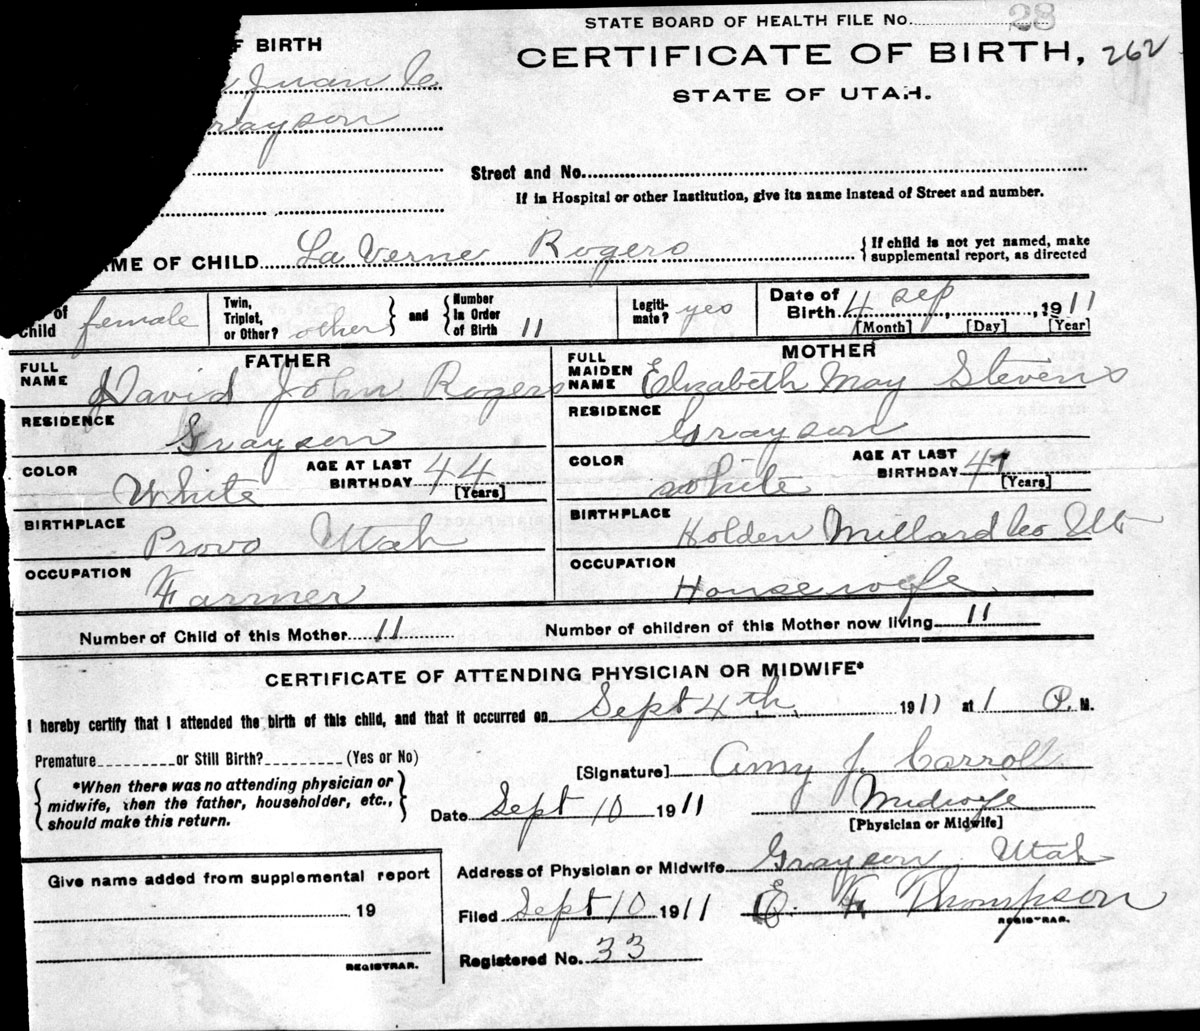 STATE BOARD OF HEALTH FILE No. 28
F BIRTH
CERTIFICATE OF BIRTH, 262
Juan Co
STATE OF UTAH.
rayson
Street and No.
If in Hospital or other Institution, give its name instead of Street and number.
AME OF CHILD La Verne Rogers {If child is not yet named, make supplemental report, as directed
of Child female Twin, Triplet, or Other? other } and { Number in Order of Birth 11 Legiti-mate? yes Date of Birth 4 Sep, 1911
[Month] [Day] [Year]
FATHER MOTHER
FULL NAME David John Rogers FULL MAIDEN NAME Elizabeth May Stevens
RESIDENCE Grayson RESIDENCE Grayson
COLOR White AGE AT LAST BIRTHDAY 44 [Years] COLOR White AGE AT LAST BIRTHDAY [Years]
BIRTHPLACE Provo Utah BIRTHPLACE Holden Millard Co Ut
OCCUPATION Farmer OCCUPATION Housewife
Number of Child of this Mother 11 Number of children of this Mother now living 11
CERTIFICATE OF ATTENDING PHYSICIAN OR MIDWIFE*
I hereby certify that I attended the birth of this child, and that it occurred on Sept 4th, 1911 at 1 P. M.
Premature or Still Birth? (Yes or No)
*When there was no attending physician or
midwife, then the father, householder, etc.,
should make this return.
[Signature] Amy J. Carroll
Date Sept 10 1911 Midwife
[Physician or Midwife]
Address of Physician or Midwife Grayson Utah
Give name added from supplemental report
19
REGISTRAR.
Filed Sept 10 1911 E. F. Thompson
REGISTRAR.
Registered No. 33